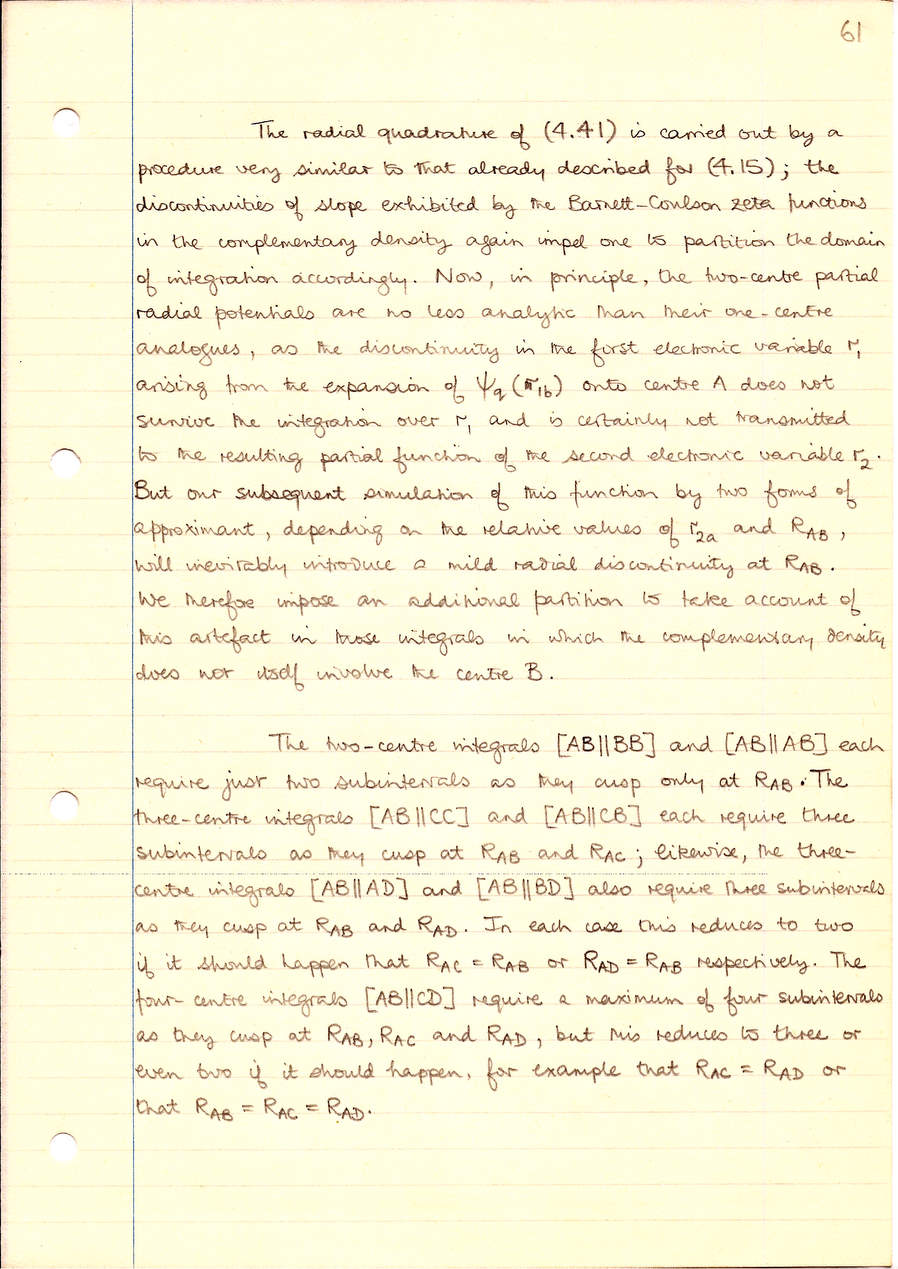 61
The radial quadrature of (4.41) is carried out by a
procedure very similar to that already described for (4.15); the
discontinuities of slope exhibited by the Barnett-Coulson zeta functions
in the complementary density again impel one to partition the domain
of integration accordingly. Now, in principle, the two-centre partial
radial potentials are no less analytic than their one-centre
analogues, as the discontinuity in the first electronic variable r₁
arising from the expansion of ψq(r1b) onto centre A does not
survive the integration over r₁ and is certainly not transmitted
to the resulting partial function of the second electronic variable r₂.
But our subsequent simulation of this function by two forms of
approximant, depending on the relative values of r2a and RAB,
will inevitably introduce a mild radial discontinuity at RAB.
We therefore impose an additional partition to take account of
this artefact in those integrals in which the complementary density
does not itself involve the centre B.
The two-centre integrals [AB||BB] and [AB||AB] each
require just two subintervals as they cusp only at RAB. The
three-centre integrals [AB||CC] and [AB||CB] each require three
subintervals as they cusp at RAB and RAC; likewise, the three-
centre integrals [AB||AD] and [AB||BD] also require three subintervals
as they cusp at RAB and RAD. In each case this reduces to two
if it should happen that RAC = RAB or RAD = RAB respectively. The
four-centre integrals [AB||CD] require a maximum of four subintervals
as they cusp at RAB, RAC and RAD, but this reduces to three or
even two if it should happen, for example that RAC = RAD or
that RAB = RAC = RAD.